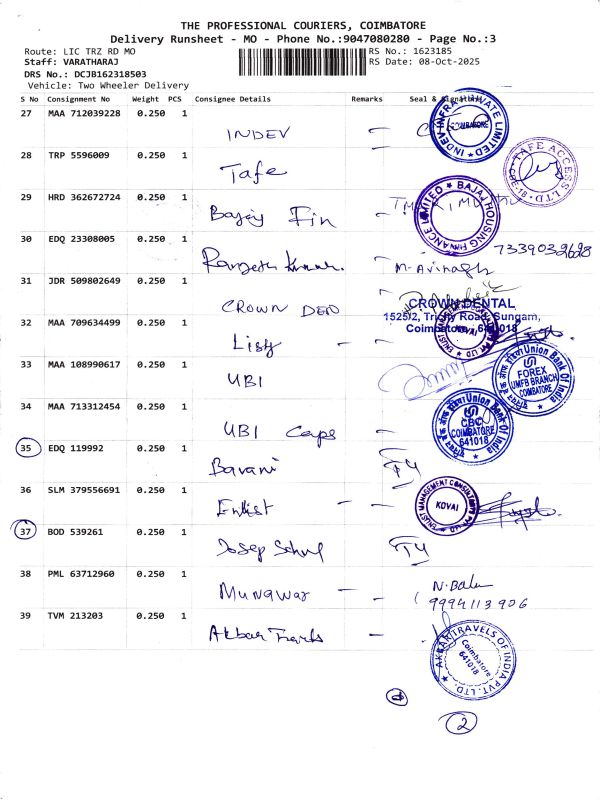 THE PROFESSIONAL COURIERS, COIMBATORE
Delivery Runsheet - MO - Phone No.:9047080280 - Page No.:3
Route: LIC TRZ RD MO
RS No.: 1623185
Staff: VARATHARAJ
RS Date: 08-Oct-2025
DRS No.: DCJB162318503
Vehicle: Two Wheeler Delivery
S No Consignment No Weight PCS Consignee Details Remarks Seal & Signature
27 MAA 712039228 0.250 1
INDEV
INDEV INFRA PRIVATE LIMITED
COIMBATORE
28 TRP 5596009 0.250 1
Tafe
TAFE ACCESS LTD.
CBE-18
29 HRD 362672724 0.250 1
Bajaj Fin
BAJAJ HOUSING FINANCE LIMITED
30 EDQ 23308005 0.250 1
7339032628
Ranjesh Kumar. M. Avinash
31 JDR 509802649 0.250 1
CROWN DEN
CROWN DENTAL
1525/2, Trichy Road, Sungam,
Coimbatore, 641018
32 MAA 709634499 0.250 1
KOVAI
33 MAA 108990617 0.250 1
UBI
Union Bank Of India
FOREX
UMFB BRANCH
COIMBATORE
34 MAA 713312454 0.250 1
UBI Caps
Union Bank Of India
CBC
COIMBATORE
641018
35 EDQ 119992 0.250 1
Bavani
36 SLM 379556691 0.250 1
Enlist
ENLIST MANAGEMENT CONSULTANTS PVT LTD
KOVAI
37 BOD 539261 0.250 1
38 PML 63712960 0.250 1
Munawar
N. Balu
9994113906
39 TVM 213203 0.250 1
Akbar Travels
AKBAR TRAVELS OF INDIA PVT. LTD.
Coimbatore
641018
2